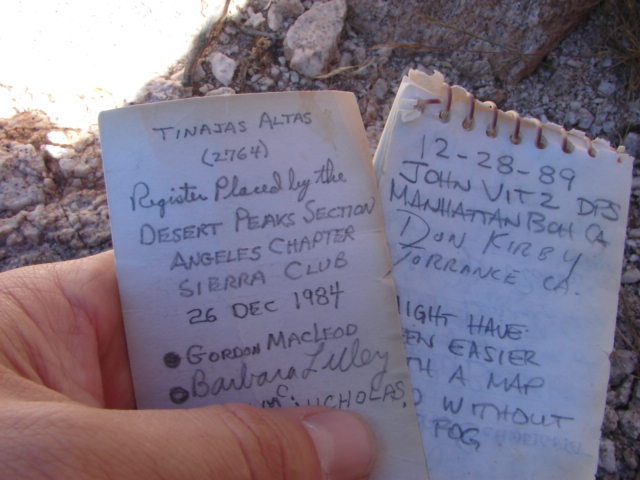 TINAJAS ALTAS
(2764)
Register Placed by the
DESERT PEAKS SECTION
ANGELES CHAPTER
SIERRA CLUB
26 DEC 1984
GORDON MACLEOD
Barbara Lilley
NICHOLAS,
12-28-89
JOHN VITZ DPS
MANHATTAN BCH CA
DON KIRBY
TORRANCE CA.
MIGHT HAVE
EN EASIER
TH A MAP
D WITHOUT
FOG